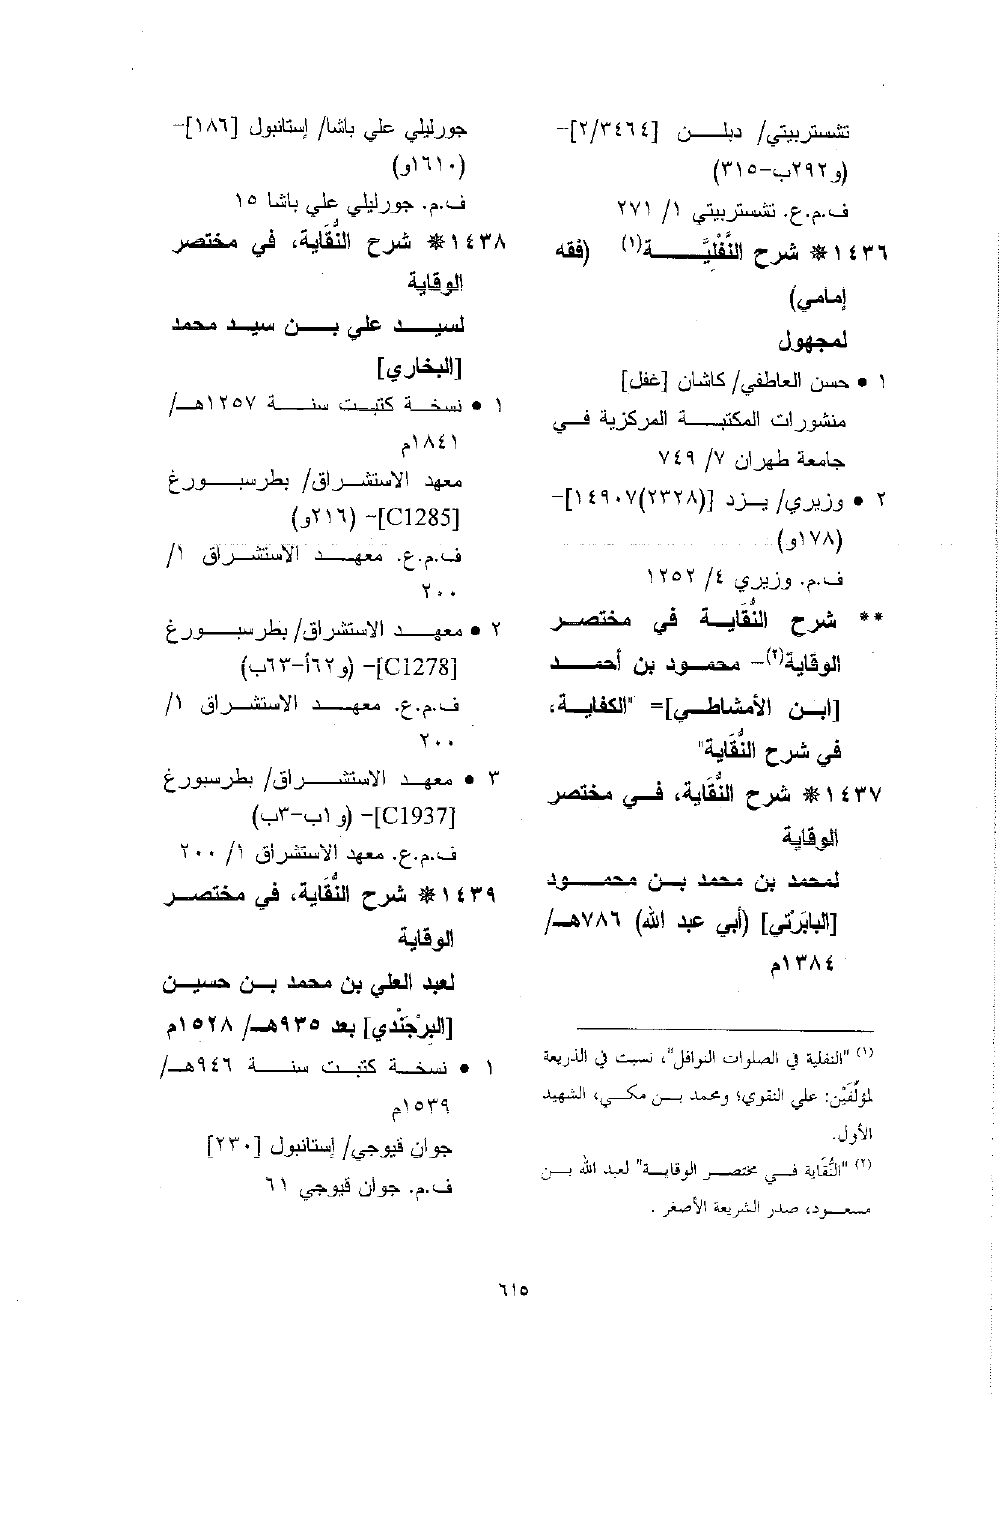 تشستربيتي/ دبلن [٢/٣٤٦٤]-
(و٢٩٢ب-٣١٥)
ف.م.ع. تشستربيتي ١/ ٢٧١
١٤٣٦* شرح النُّفْلِيَّة(١) (فقه
إمامي)
لمجهول
١ • حسن العاطفي/ كاشان [غفل]
منشورات المكتبة المركزية في
جامعة طهران ٧/ ٧٤٩
٢ • وزيري/ يزد [(٢٣٢٨)١٤٩٠٧]-
(١٧٨و)
ف.م. وزيري ٤/ ١٢٥٢
** شرح النُّقَاية في مختصر
الوقاية(٢)- محمود بن أحمد
[ابن الأمشاطي]= "الكفاية،
في شرح النُّقَاية"
١٤٣٧* شرح النُّقَاية، في مختصر
الوقاية
لمحمد بن محمد بن محمود
[البابَرْتي] (أبي عبد الله) ٧٨٦هـ/
١٣٨٤م
(١) "النفلية في الصلوات النوافل"، نسبت في الذريعة
لمؤلِّفَيْن: علي النقوي؛ ومحمد بن مكي، الشهيد
الأول.
(٢) "النُّقَاية في مختصر الوقاية" لعبد الله بن
مسعود، صدر الشريعة الأصغر .
جورليلي علي باشا/ إستانبول [١٨٦]-
(١٦١٠و)
ف.م. جورليلي علي باشا ١٥
١٤٣٨* شرح النُّقَاية، في مختصر
الوقاية
لسيد علي بن سيد محمد
[البخاري]
١ • نسخة كتبت سنة ١٢٥٧هـ/
١٨٤١م
معهد الاستشراق/ بطرسبورغ
[C1285]- (٢١٦و)
ف.م.ع. معهد الاستشراق ١/
٢٠٠
٢ • معهد الاستشراق/ بطرسبورغ
[C1278]- (و٦٢أ-٦٣ب)
ف.م.ع. معهد الاستشراق ١/
٢٠٠
٣ • معهد الاستشراق/ بطرسبورغ
[C1937]- (و١ب-٣ب)
ف.م.ع. معهد الاستشراق ١/ ٢٠٠
١٤٣٩* شرح النُّقَاية، في مختصر
الوقاية
لعبد العلي بن محمد بن حسين
[البِرْجَنْدي] بعد ٩٣٥هـ/ ١٥٢٨م
١ • نسخة كتبت سنة ٩٤٦هـ/
١٥٣٩م
جوان قيوجي/ إستانبول [٢٣٠]
ف.م. جوان قيوجي ٦١
٦١٥